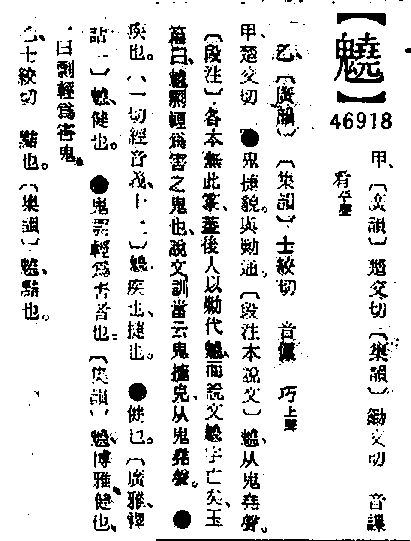 【䰫】
46918
甲、〔廣韻〕楚交切〔集韻〕鋤交切 音
肴平聲
乙、〔廣韻〕〔集韻〕士絞切 音 巧上聲
甲、楚交切 ●鬼捷貌與勦通。〔段注本說文〕䰫、从鬼堯聲。
〔段注〕各本無此篆、蓋後人以勦代䰫、而說文䰫字亡矣、玉
篇曰、䰫剽輕爲害之鬼也、說文訓當云鬼捷皃、从鬼堯聲。●
疾也。〔一切經音義、十二〕䰫、疾也、捷也。●健也。〔廣雅釋
詁二〕䰫、健也。●鬼剽輕爲害者也〔集韻〕䰫、博雅、健也、
一曰剽輕爲害鬼。
乙、士絞切 黠也。〔集韻〕䰫、黠也。